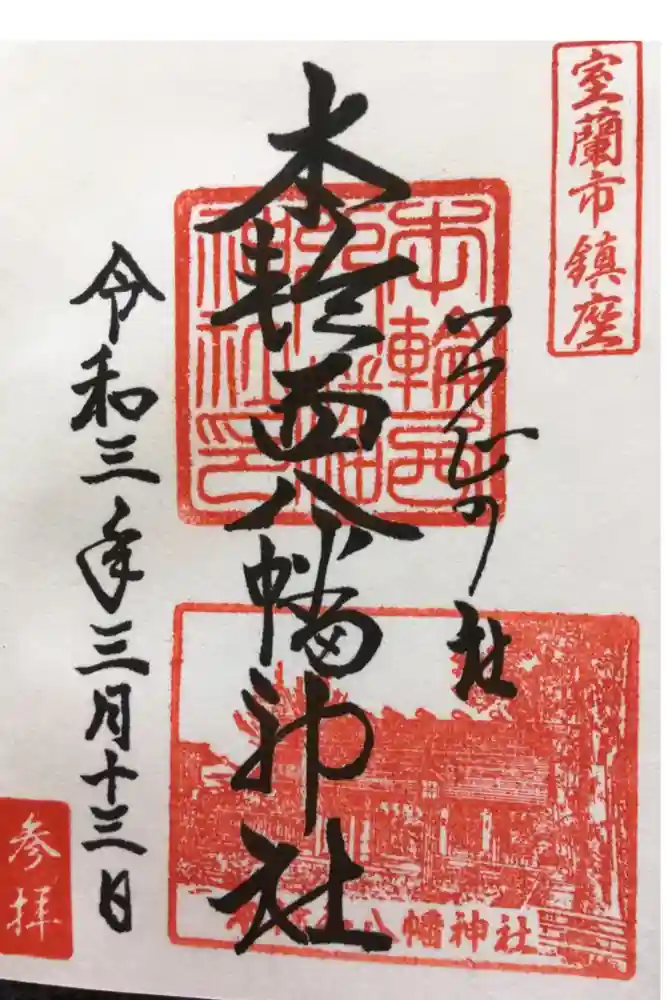 室蘭市鎮座
つつじの杜
本輪西八幡神社
本輪西
八幡
神社印
本輪西八幡神社
令和三年三月十三日
参拝